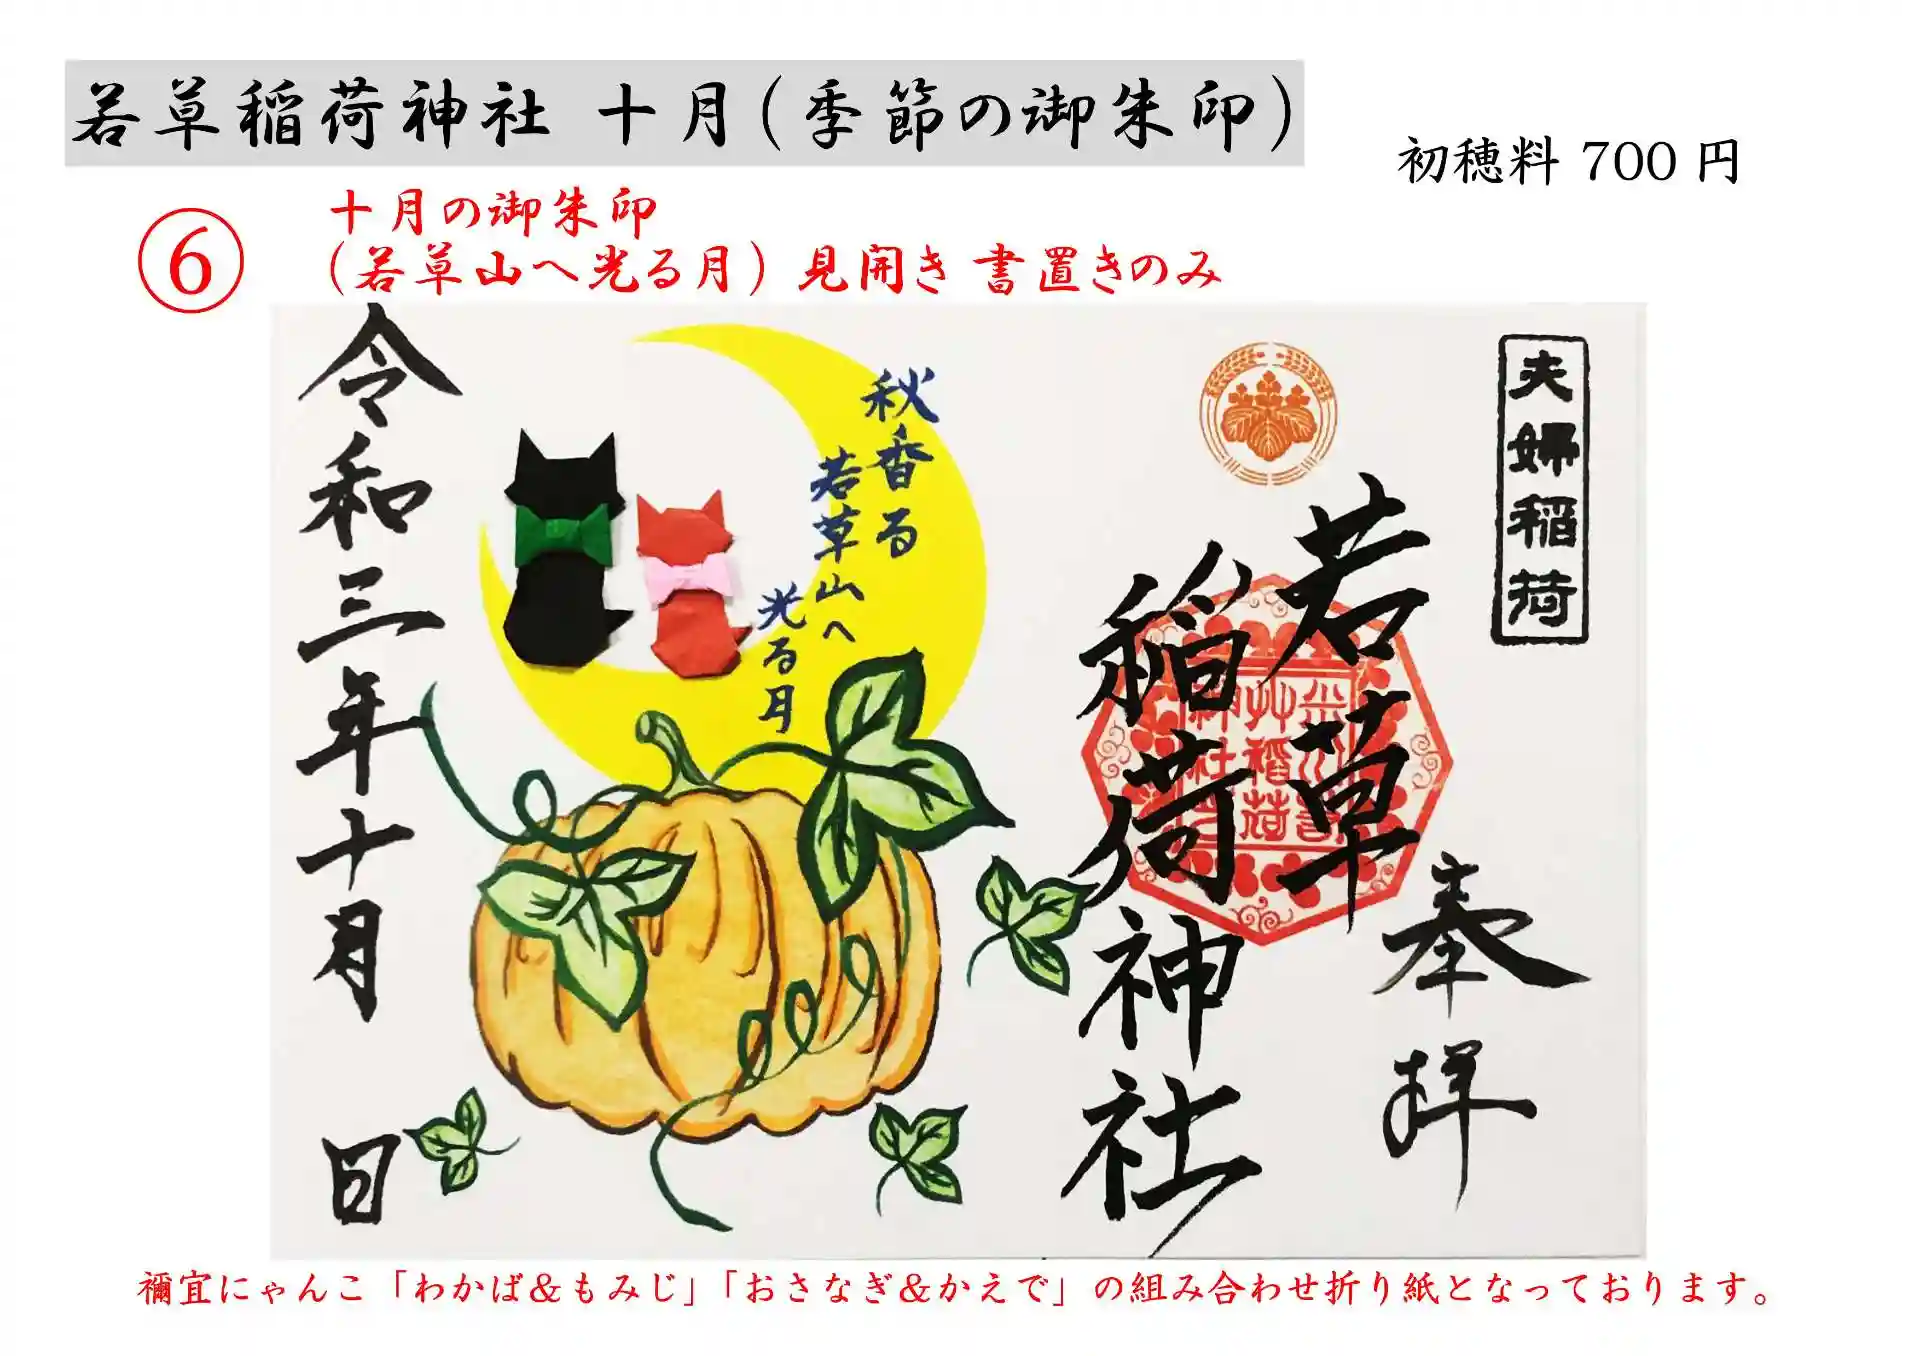 若草稲荷神社 十月(季節の御朱印)
初穂料 700 円
⑥
十月の御朱印
(若草山へ光る月) 見開き 書置きのみ
夫婦稲荷
奉拝
若草
稲荷神社
秋香る
若草山へ
光る月
令和三年十月 日
禰宜にゃんこ「わかば&もみじ」「おさなぎ&かえで」の組み合わせ折り紙となっております。